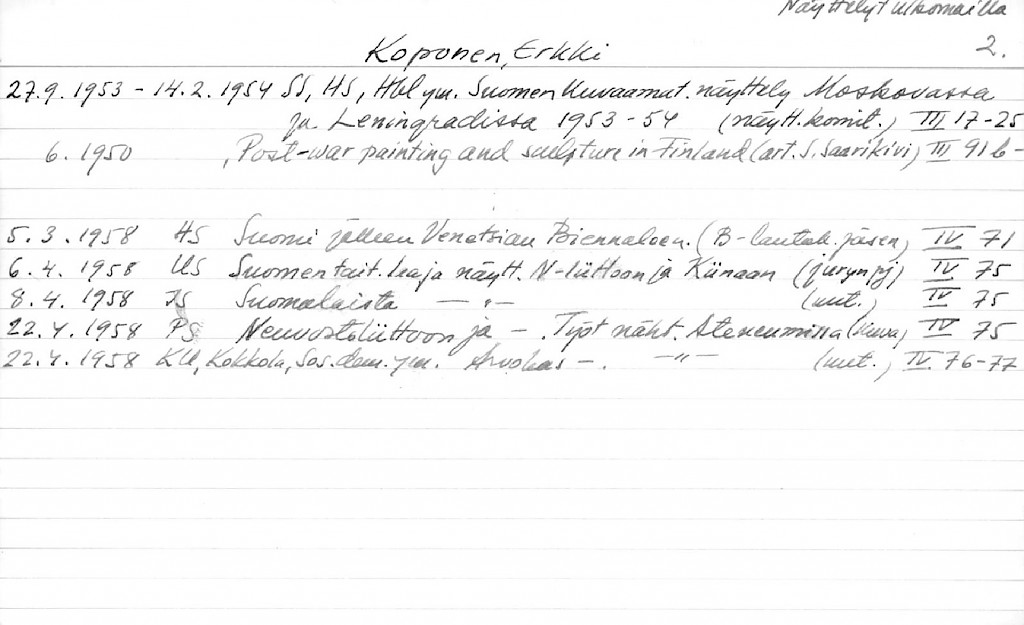 Näyttelyt ulkomailla
2.
Koponen, Erkki
27.9.1953 - 14.2.1954 SS, HS, Hbl ym. Suomen Kuvaamat. näyttely Moskovassa
ja Leningradissa 1953-54 (näytt.komit.) III 17-25
6.1950 , Post-war painting and sculpture in Finland (art. S. Saarikivi) III 91b-
5.3.1958 HS Suomi jälleen Venetsian Biennaleen. (B-lautak. jäsen) IV 71
6.4.1958 US Suomen tait. laaja näytt. N-liittoon ja Kiinaan (juryn pj) IV 75
8.4.1958 Suomalaista —„— (uut.) IV 75
22.4.1958 PS Neuvostoliittoon ja - . Työt näht. Ateneumissa (kuva) IV 75
22.4.1958 KU, Kokkola, Sos.dem. ym. Arvokas - . —„— (uut.) IV 76-77